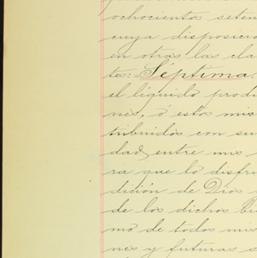 ochocientos seten
cuya disposicio
en otras las cla
te: Séptima.
el líquido produ
nes, ó estos mis
tribuidos con su
dad, entre mis
ra que lo disfru
dición de Dios
de los dichos bie
mo de todos mis
nes y futuras s